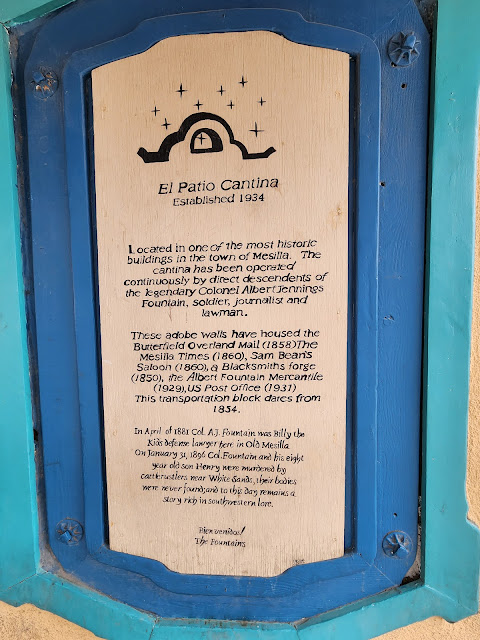 El Patio Cantina
Established 1934
Located in one of the most historic
buildings in the town of Mesilla. The
cantina has been operated
continuously by direct descendents of
the legendary Colonel Albert Jennings
Fountain, soldier, journalist and
lawman.
These adobe walls have housed the
Butterfield Overland Mail (1858) The
Mesilla Times (1860), Sam Bean's
Saloon (1860), a Blacksmiths forge
(1850), the Albert Fountain Mercantile
(1929), US Post Office (1931)
This transportation block dates from
1854.
In April of 1881 Col. A.J. Fountain was Billy the
Kids defense lawyer here in Old Mesilla
On January 31, 1896 Col. Fountain and his eight
year old son Henry were murdered by
cattlerustlers near White Sands, their bodies
were never found; and to this day remains a
story rich in southwestern lore.
Bienvenidos!
The Fountains